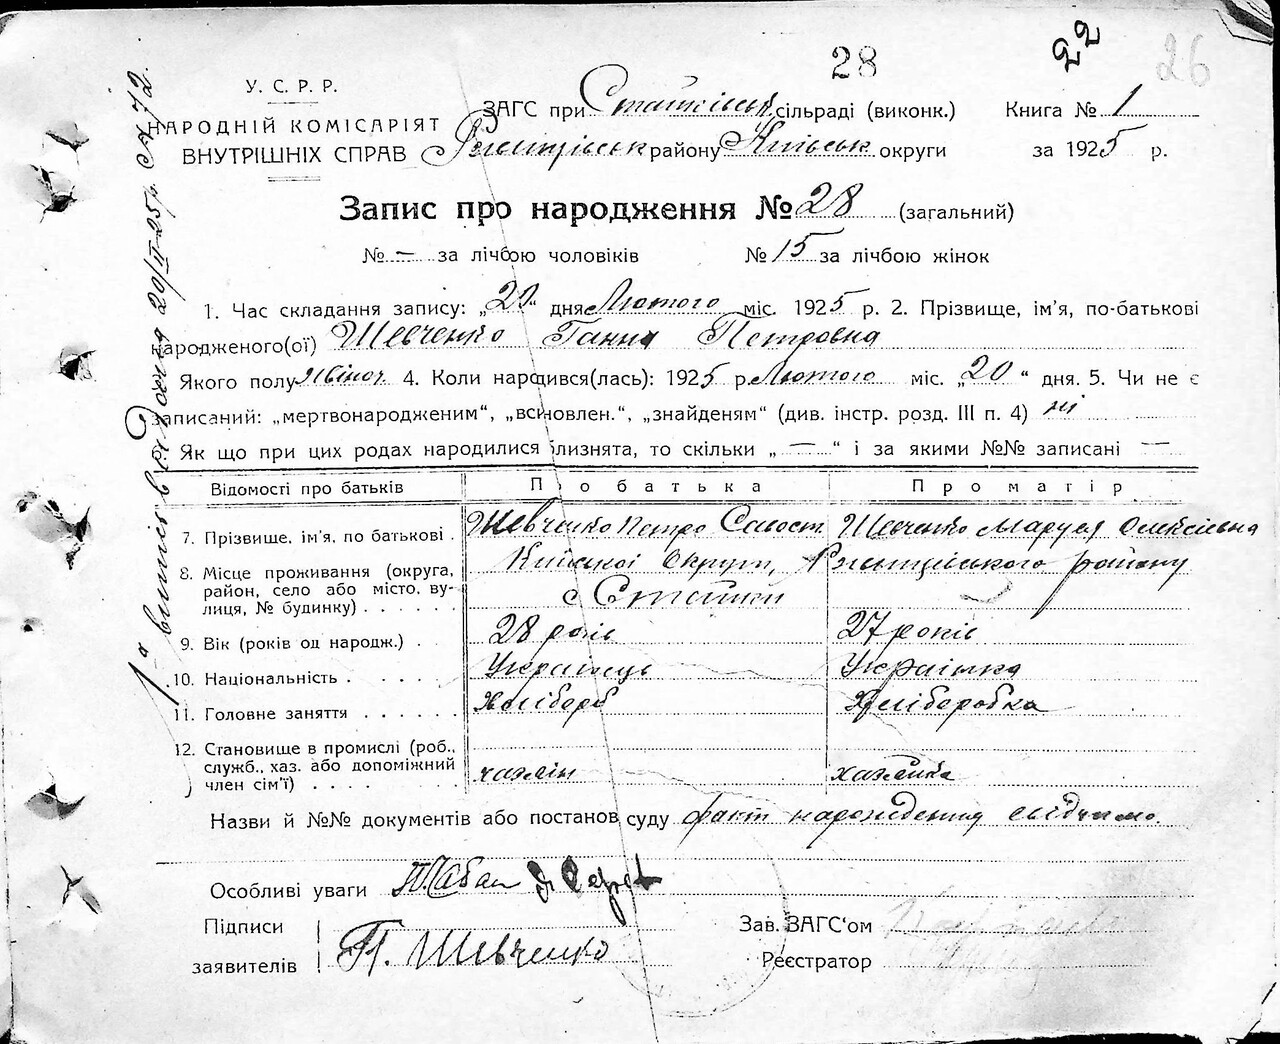 28 22 26
У. С. Р. Р.
НАРОДНІЙ КОМІСАРІЯТ
ВНУТРІШНІХ СПРАВ
ЗАГС при Стайківськ сільраді (виконк.) Книга № 1
Ржищівськ району Київськ округи за 1925 р.
Запис про народження № 28 (загальний)
№ — за лічбою чоловіків № 15 за лічбою жінок
1. Час складання запису: „22“ дня Лютого міс. 1925 р. 2. Прізвище, ім'я, по-батькові
народженого(ої) Шевченко Ганна Петровна
Якого полу жіноч 4. Коли народився(лась): 1925 р. Лютого міс. „20“ дня. 5. Чи не є
записаний: „мертвонародженим“, „всиновлен.“, „знайденям“ (див. інстр. розд. III п. 4) ні
Як що при цих родах народилися близнята, то скільки „—“ і за якими №№ записані —
Відомості про батьків Про батька Про матір
7. Прізвище, ім'я, по батькові . Шевченко Петро Савост Шевченко Маруся Олексіївна
8. Місце проживання (округа, район, село або місто, вулиця, № будинку) . . . . . . Київської Округи, Ржищівського району
с Стайки
9. Вік (років од народж.) . 28 років 27 років
10. Національність . . . . . Українець Українка
11. Головне заняття . . . . . . Хлібороб Хліборобка
12. Становище в промислі (роб., служб., хаз. або допоміжний член сім'ї) . . . . хазяїн хазяйка
Назви й №№ документів або постанов суду факт народження свідчимо.
Особливі уваги
Підписи
заявителів П. Шевченко
Зав. ЗАГС'ом
Реєстратор